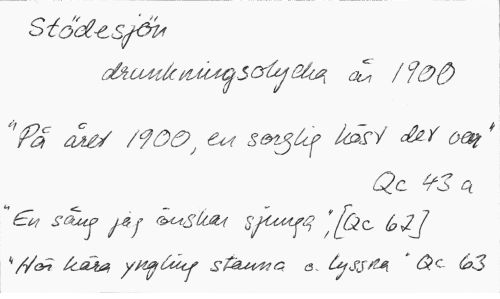 Stödesjön
drunkningsolycka år 1900
"På året 1900, en sorglig höst det var"
Qc 43 a
"En sång jag önskar sjunga", [Qc 62]
"Hör kära yngling stanna o. lyssna" Qc 63